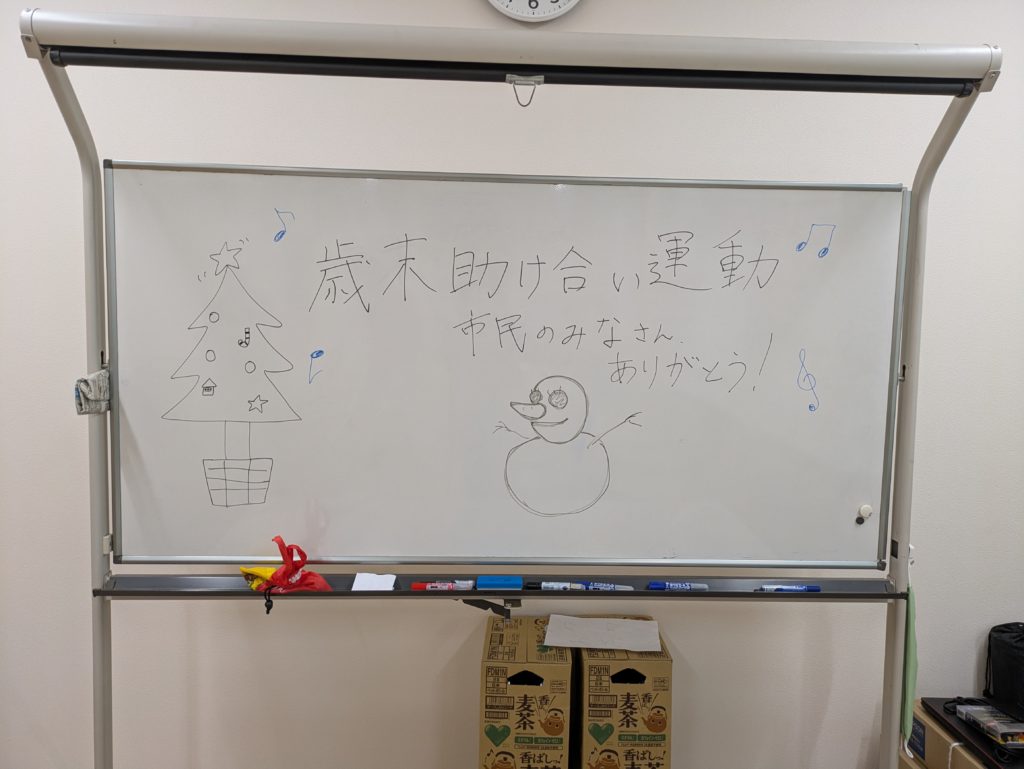 歳末助け合い運動
市民のみなさん、
ありがとう!
6
FDM1N
FDM1N
香
麦茶
麦茶
香ばしっ!
香ばしっ!